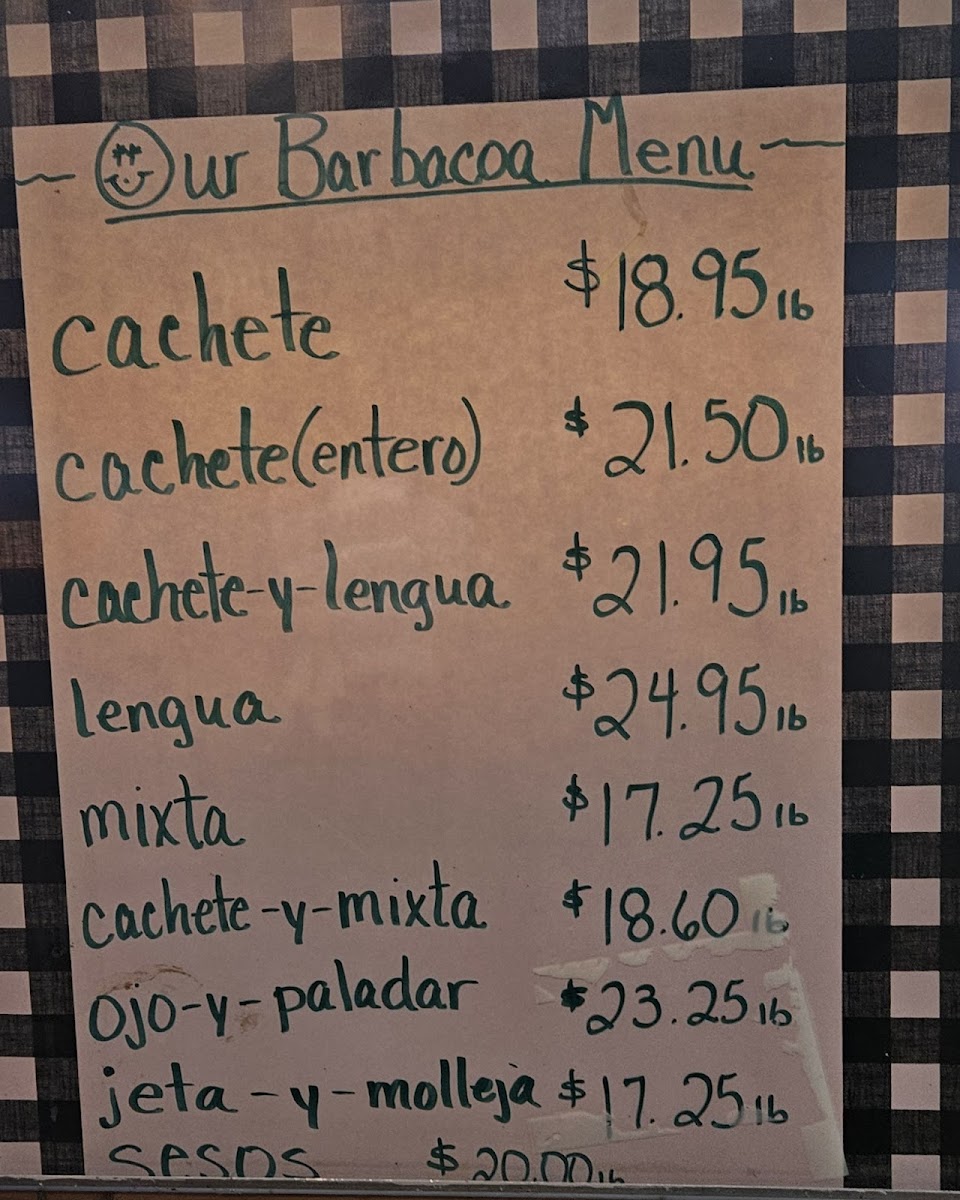 Our Barbacoa Menu
cachete $18.95 lb
cachete(entero) $21.50 lb
cachete-y-lengua $21.95 lb
lengua $24.95 lb
mixta $17.25 lb
cachete-y-mixta $18.60 lb
ojo-y-paladar $23.25 lb
jeta-y-molleja $17.25 lb
sesos $20.00 lb